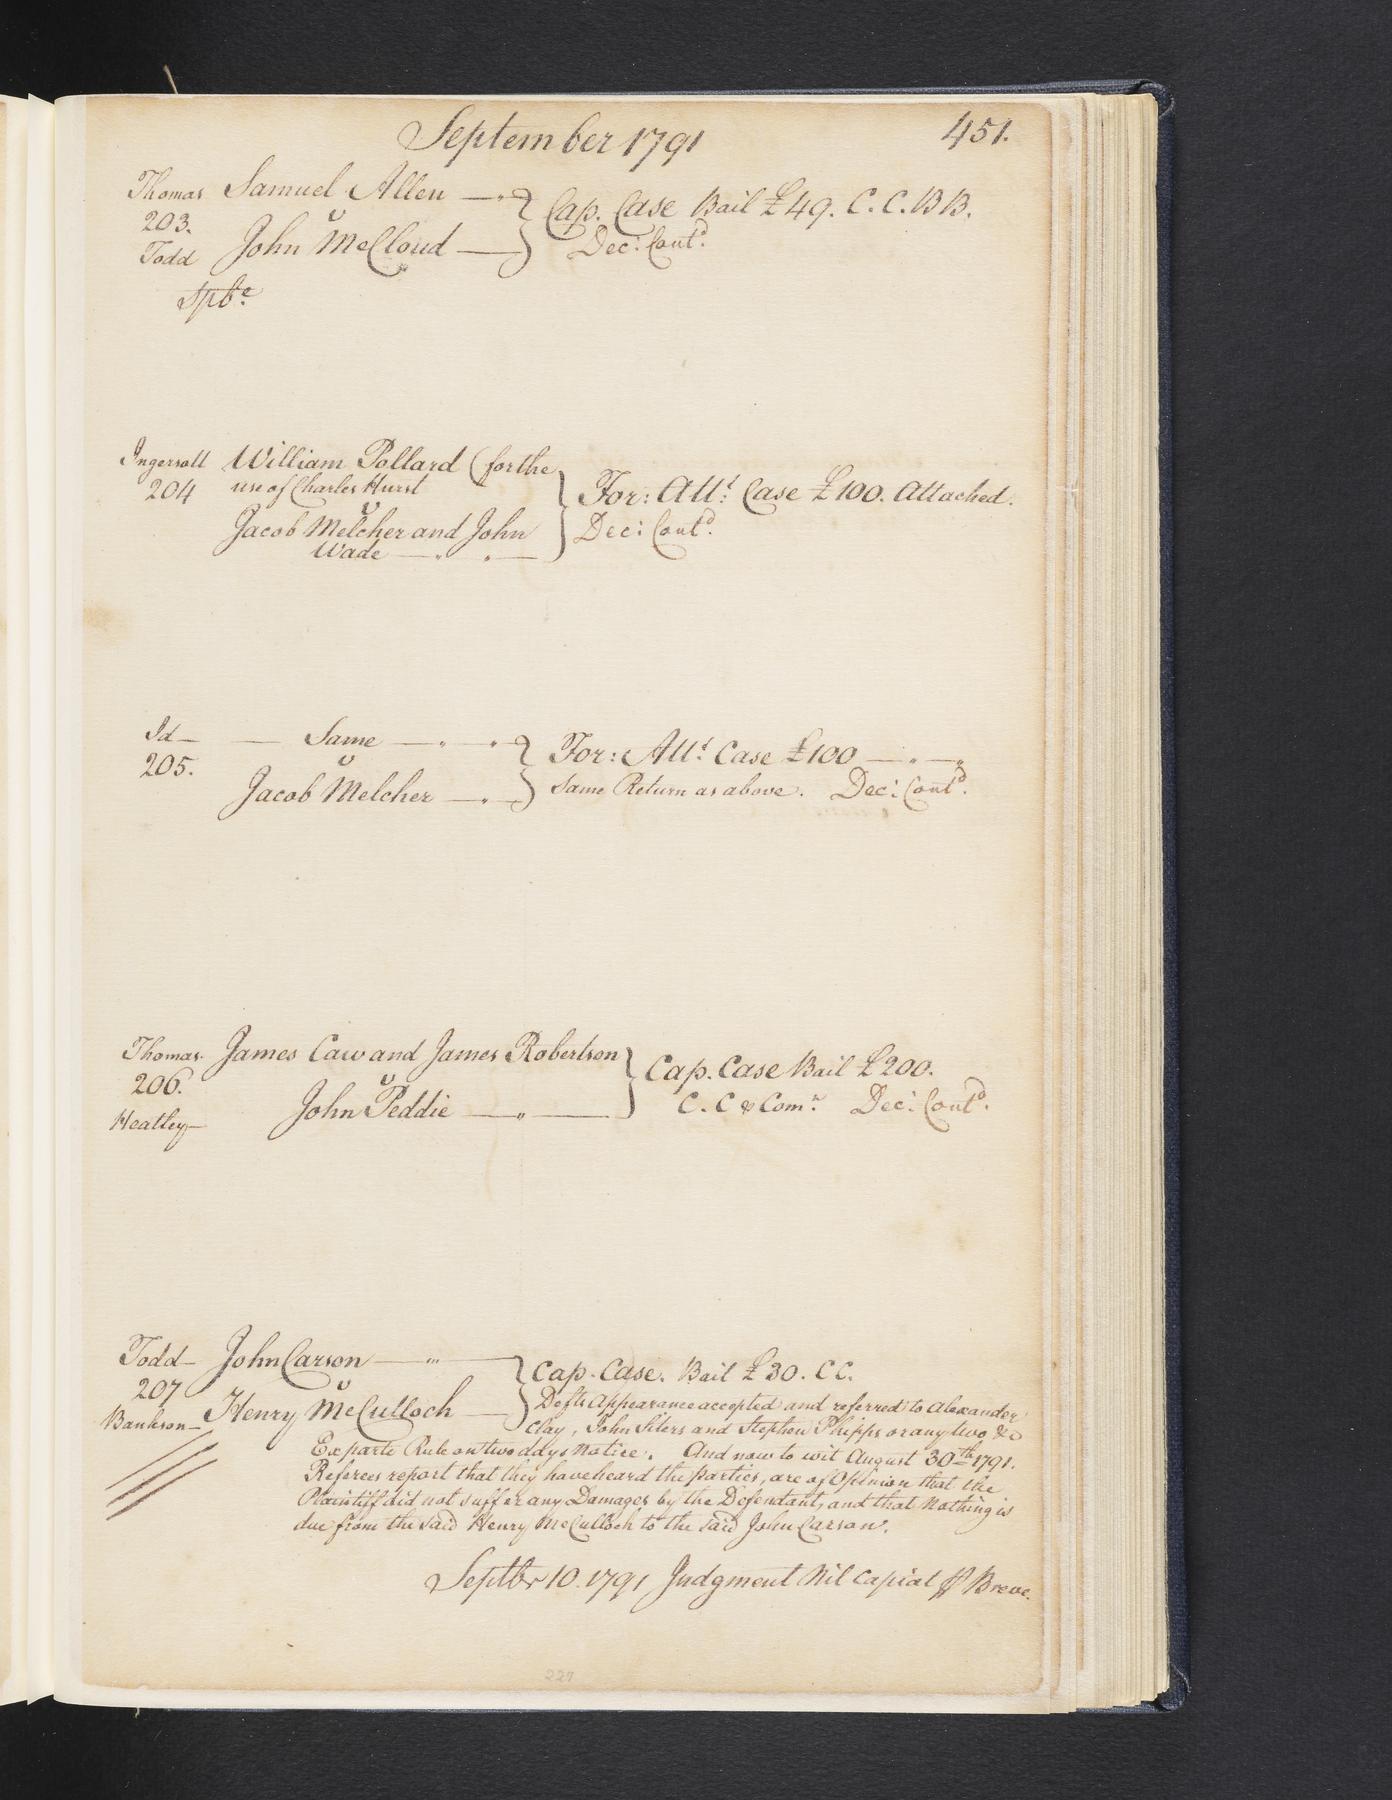 September 1791
451.
Thomas Samuel Allen Cap. Case Bail £49. C. C. B B.
203. v
Todd John McCloud Dec: Contd.
Spbe
Ingersoll William Pollard (for the
204 use of Charles Hurst For: Attt. Case £100. Attached.
v
Jacob Melcher and John Dec: Contd.
Wade
Id— Same For: Attt. Case £100
205. v
Jacob Melcher Same Return as above. Dec: Contd.
Thomas. James Caw and James Robertson Cap. Case Bail £200.
206. v
Heatley— John Peddie C. C & Comn. Dec: Contd.
Todd— John Carson Cap. Case. Bail £30. C C.
207 v
Bankson— Henry McCulloch Defts Appearance accepted and referred to Alexander
Clay, John Siters and Stephen Phipps or any two &c
Exparte Rule on two days Notice. And now to wit August 30th 1791.
Referees report that they have heard the parties, are of Opinion that the
Plaintiff did not suffer any Damages by the Defendant, and that Nothing is
due from the said Henry McCulloch to the said John Carson.
Septbr 10. 1791 Judgment Nil Capiat Breve.
227